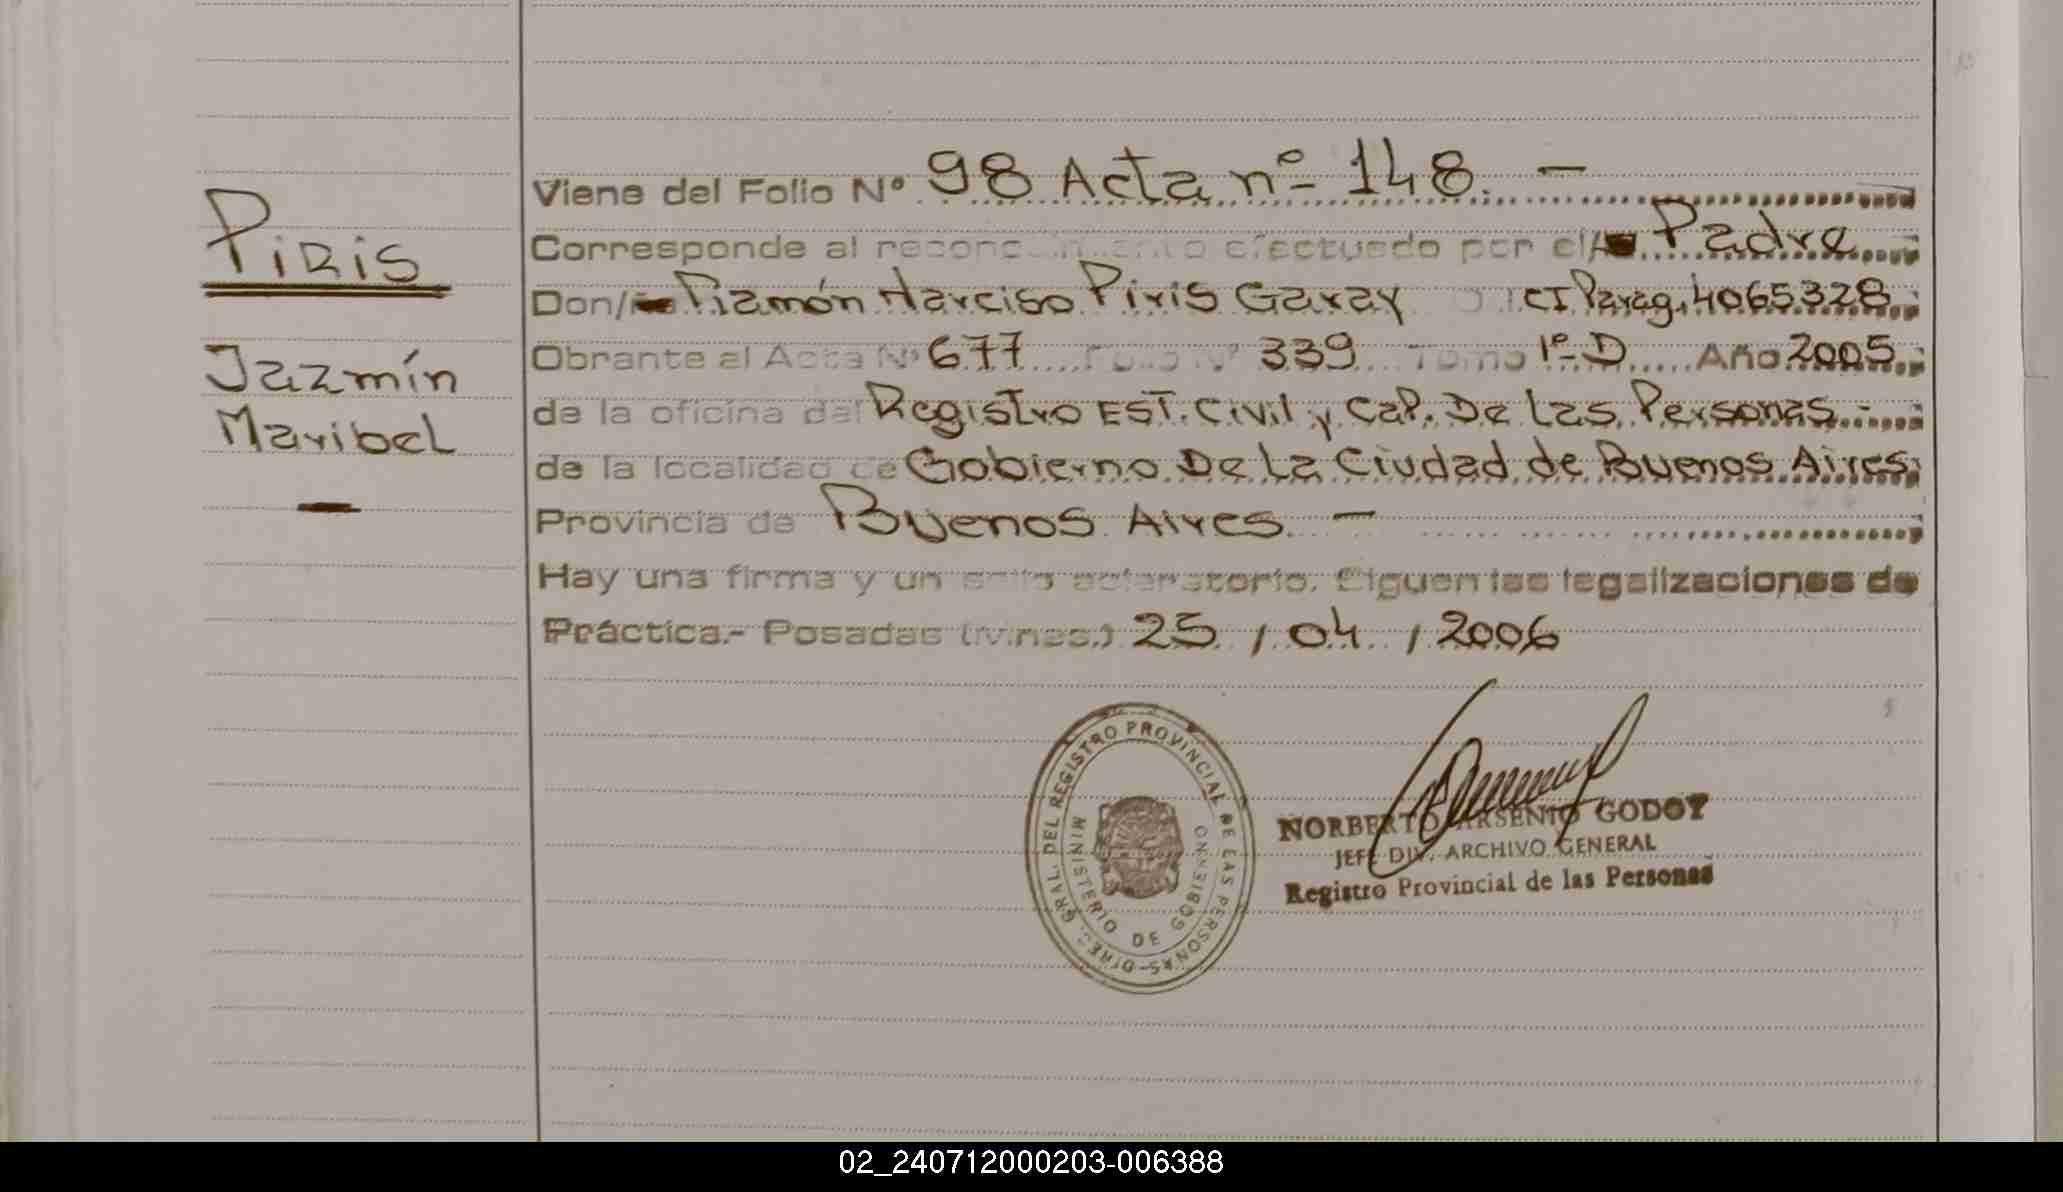 Viene del Folio Nº 98 Acta nº 148. —
PIRIS
Corresponde al reconocimiento efectuado por el/ Padre
Don/ Ramón Narciso Piris Garay CI Parag. 4065328
Jazmín
Obrante al Acta Nº 677 Folio Nº 339 Tomo 1º-D Año 2005
de la oficina del Registro EST. Civil y Cap. De Las Personas.-
Maribel
de la localidad de Gobierno De La Ciudad de Buenos Aires
—
Provincia de Buenos Aires. —
Hay una firma y un sello aclaratorio. Siguen las legalizaciones de
Práctica.- Posadas (Mnes.) 25 / 04 / 2006
DIREC. GRAL. DEL REGISTRO PROVINCIAL DE LAS PERSONAS-
MINISTERIO DE GOBIERNO
NORBERTO ARSENIO GODOY
JEFE DIV. ARCHIVO GENERAL
Registro Provincial de las Personas
02_240712000203-006388